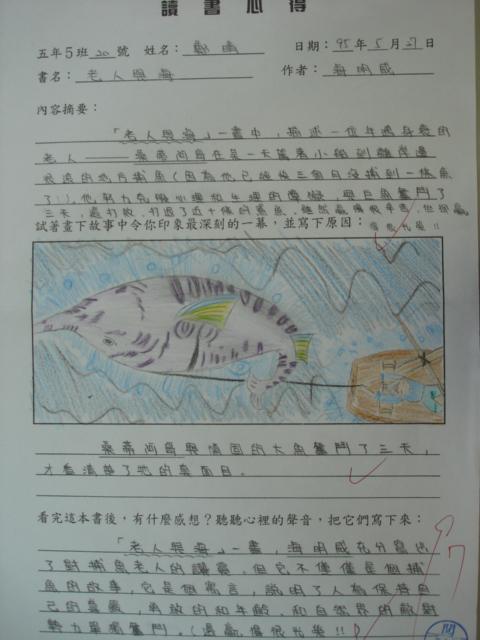 讀書心得
五年5班20號 姓名：鄭晴 日期：95年5月27日
書名：老人與海 作者：海明威
內容摘要：
「老人與海」一書中，描述一位年過
老人——桑蒂阿哥在某一天駕著小船到離岸邊
很遠的地方捕魚(因為他已經後三個月沒捕到一條魚
了)，他努力克服心理和生理的 與巨魚奮鬥了
三天，還打敗、打退了近十條的鯊魚，雖然贏得很辛苦，但
試著畫下故事中令你印象最深刻的一幕，並寫下原因：
桑蒂阿哥與頑固的大魚奮鬥了三天，
才看清楚了牠的真面目。
看完這本書後，有什麼感想？聽聽心裡的聲音，把它們寫下來：
「老人與海」一書，海明威充分寫出
了對捕魚老人的讚賞，但它不僅僅是個捕
魚的故事，它是個寓言，說明了人為保持自
己的尊嚴， 和年齡，和自然界的敵對
勢力單獨奮鬥。(還贏得很光榮!!)
閱